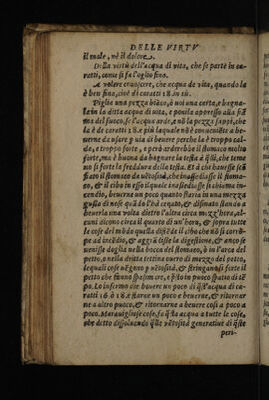 DELLE VIRTV
il male, nè il dolore.
Della virtù dell'acqua di vita, che se parte in ca-
ratti, come si fa l'oglio fino.
A volere cognoscere, che acqua de vita, quando la
è ben fina, cioè di caratti 18. in 20.
Piglia una pezza biãca, ò uoi una carta, e bagna-
la in la ditta acqua di vita, e ponila appresso alla fiã
ma del fuoco, se l'acqua arde, e nõ la pezza sappi, che
la è de caratti 18. e piu laquale nõ è conueniẽte a be-
uerne da usare p uia di beuere perche la è troppo cal-
da, e troppo forte, e però arderebbe il stomaco molto
forte, ma è buona da bagnare la testa à q̃lli, che teme
no si forte la freddura della testa. Et à chi hauesse
il stomaco de uẽtosità, che inasse il stoma-
co, e il cibo in esso ilquale in
cendio, beuerne un poco quanto staria in una mezza
gussa di nose quã do l'hà cargato, & dismato stando a
beuerla una volta drieto l'altra circa mezz'hora, al-
cuni dicono circa il quarto di un'hora, & sopra tutte
le cose del
ap al incẽdio, & e la digestione, & anco se
uenisse doglia nella bocca del stomaco, ò in l'arco del
petto, o nella dritta trettina curro di mezzo del petto,
lequali cose uẽgno p uẽtosità, & stringandosi forte il
petto che si uno spasemare, e q̃sto in puoco spatio di tẽ
po. Lo infermo die beuere un poco di q̃st'acqua di ca-
ratti 16 ò 18. e starae un poco e beuerne, & ritornar
ne a altro puoco, & ritornarne a beuere così a poco a
poco. Marauigliose cose, fa q̃sta acqua a tutte le cose,
che detto dissoluendo q̃lle uẽtosità generatiue di q̃sto
peri-